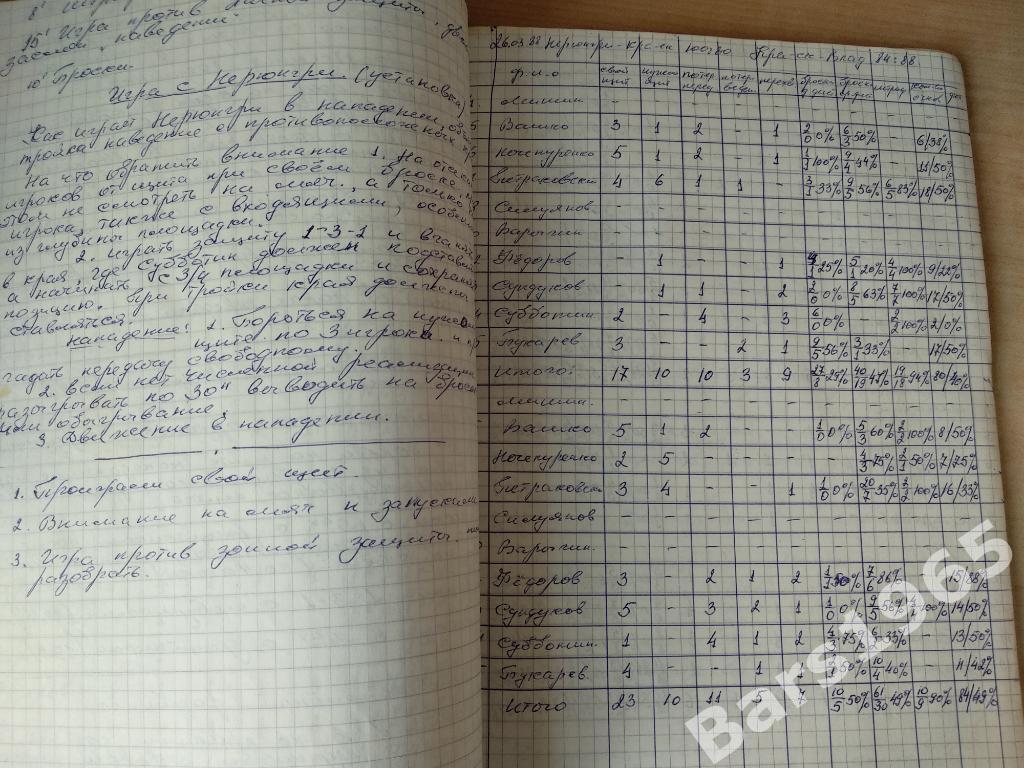 15' Игра против
заслон, наведении.
10' броски.
Игра с Нерюнгри (установка)
Как играет Нерюнгри в нападении,
тройка наведение с противоположных
На что обратить внимание 1. На
игроков от щита при своём броске
этом не смотреть на мяч, а только
игрока, также с входящими, особенно
из глубины площадки.
2. играть защиту 1-3-1 и
в края, где Субботин должен подстав
а начинать с 3/4 площадки и сохраня
позицию. При тройки края должен
ставляться.
нападение: 1. Бороться на чужом
щите по 3 игрока. и
гадать передачу свободному.
2. если нет численной реализации
разыгрывать по 30" выводить на бросок
или обыгрывание.
3. Движение в нападении.
1. Проиграли свой щит.
2. Внимание на мяч и запускаем
3. Игра против зонной защиты
разобрать.
26.03.88 Нерюнгри - Кр-ск 100:80 Кра-ск - Влад 84:88
ф.и.о свой щит чужой щит потер перед потер веден перехв
Вашко 3 1 2 - 1 2/0 0% 6/3 50% - 6/38%
Ночепуренко 5 1 2 - 1 1/1 100% 9/4 44% - 11/50%
Петраковски 4 6 1 1 - 3/1 33% 9/5 56% 6/5 83% 18/50%
Силуянов - - - - - - - - -
Варыгин - - - - - - - - -
Фёдоров - 1 - - 1 4/1 25% 5/1 20% 4/4 100% 9/22%
Сундуков - 1 1 - 2 2/0 0% 8/5 63% 7/7 100% 17/50%
Субботин 2 - 4 - 3 6/0 0% - 2/2 100% 2/0%
Пукарев 3 - - 2 1 9/5 56% 3/1 33% - 17/50%
Итого: 17 10 10 3 9 27/8 29% 40/19 47% 19/18 94% 80/40%
Вашко 5 1 2 - - 1/0 0% 5/3 60% 2/2 100% 8/50%
Ночепуренко 2 5 - - - - 4/3 75% 2/1 50% 7/75%
Петраковски 3 4 - - 1 1/0 0% 20/7 35% 2/2 100% 16/33%
Силуянов - - - - - - - - -
Варыгин. - - - - - - - - -
Фёдоров 3 - 2 1 2 7/6 86% - 15/88%
Сундуков 5 - 3 2 1 1/0 0% 9/5 56% 4/4 100% 14/50%
Субботин. 1 - 4 1 2 4/3 75% 6/2 33% - 13/50%
Пукарев. 4 - - 1 1 2/1 50% 10/4 40% - 11/42%
Итого 23 10 11 5 7 10/5 50% 61/30 49% 10/9 90% 84/49%
Bars1965